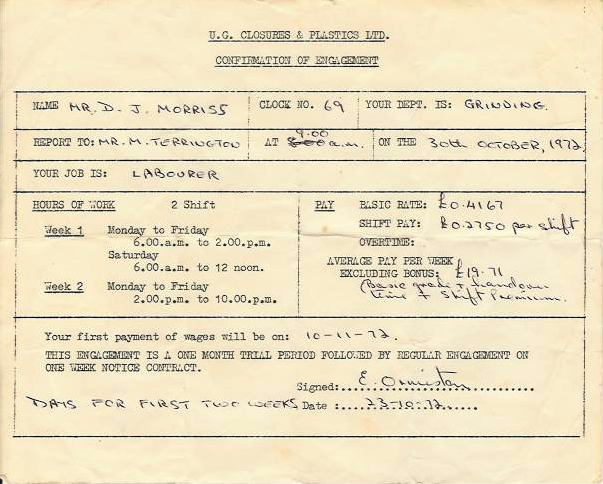 U.G. CLOSURES & PLASTICS LTD.
CONFIRMATION OF ENGAGEMENT
NAME MR. D. J. MORRISS CLOCK NO. 69 YOUR DEPT. IS: GRINDING.
9.00
REPORT TO: MR. M. TERRINGTON AT 8.00 a.m. ON THE 30th OCTOBER, 1972
YOUR JOB IS: LABOURER
HOURS OF WORK 2 Shift PAY BASIC RATE: £0.4167
SHIFT PAY: £0.2750 per shift
Week 1 Monday to Friday
6.00.a.m. to 2.00.p.m.
OVERTIME:
Saturday
6.00.a.m. to 12 noon.
AVERAGE PAY PER WEEK
EXCLUDING BONUS: £19.71
Week 2 Monday to Friday
2.00.p.m. to 10.00.p.m.
(Basic grade + handover
time + Shift Premium.
Your first payment of wages will be on: 10-11-72.
THIS ENGAGEMENT IS A ONE MONTH TRIAL PERIOD FOLLOWED BY REGULAR ENGAGEMENT ON
ONE WEEK NOTICE CONTRACT.
Signed: E. Ormiston
DAYS FOR FIRST TWO WEEKS Date : 23-10-72